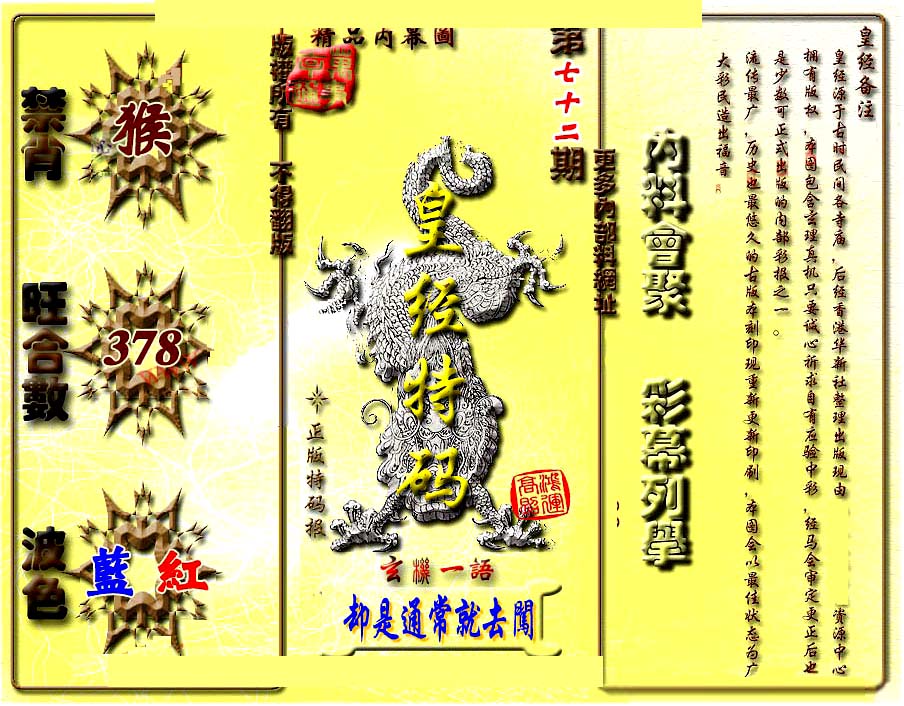 皇经备注
皇经源于古时民间各寺庙，后经香港华新社整理出版现由 资源中心
拥有版权，本图包含玄理真机只要诚心祈求自有应验中彩，经马会审定更正后也
是少数可正式出版的内部彩报之一。
流传最广，历史也最悠久的古版本刻印现重新更新印刷，本图会以最佳状态为广
大彩民造出福音
內料會聚 彩幕列擧
更多內部料網址
第七十二期
精品内幕圖
皇经特码
正版特码报
鴻運
高照
玄機一語
却是通常就去闖
版權所有 不得翻版
禁肖
猴
旺合數
378
波色
藍 紅